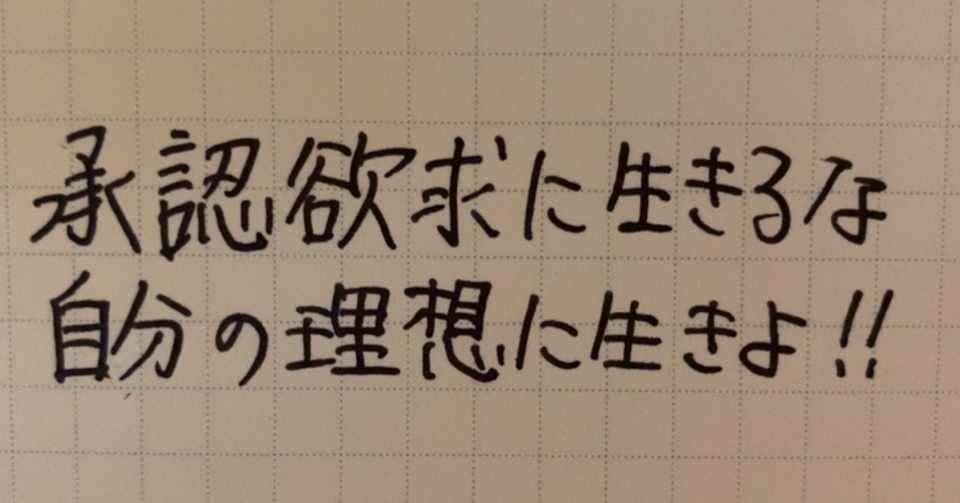 承認欲求に生きるな
自分の理想に生きよ!!